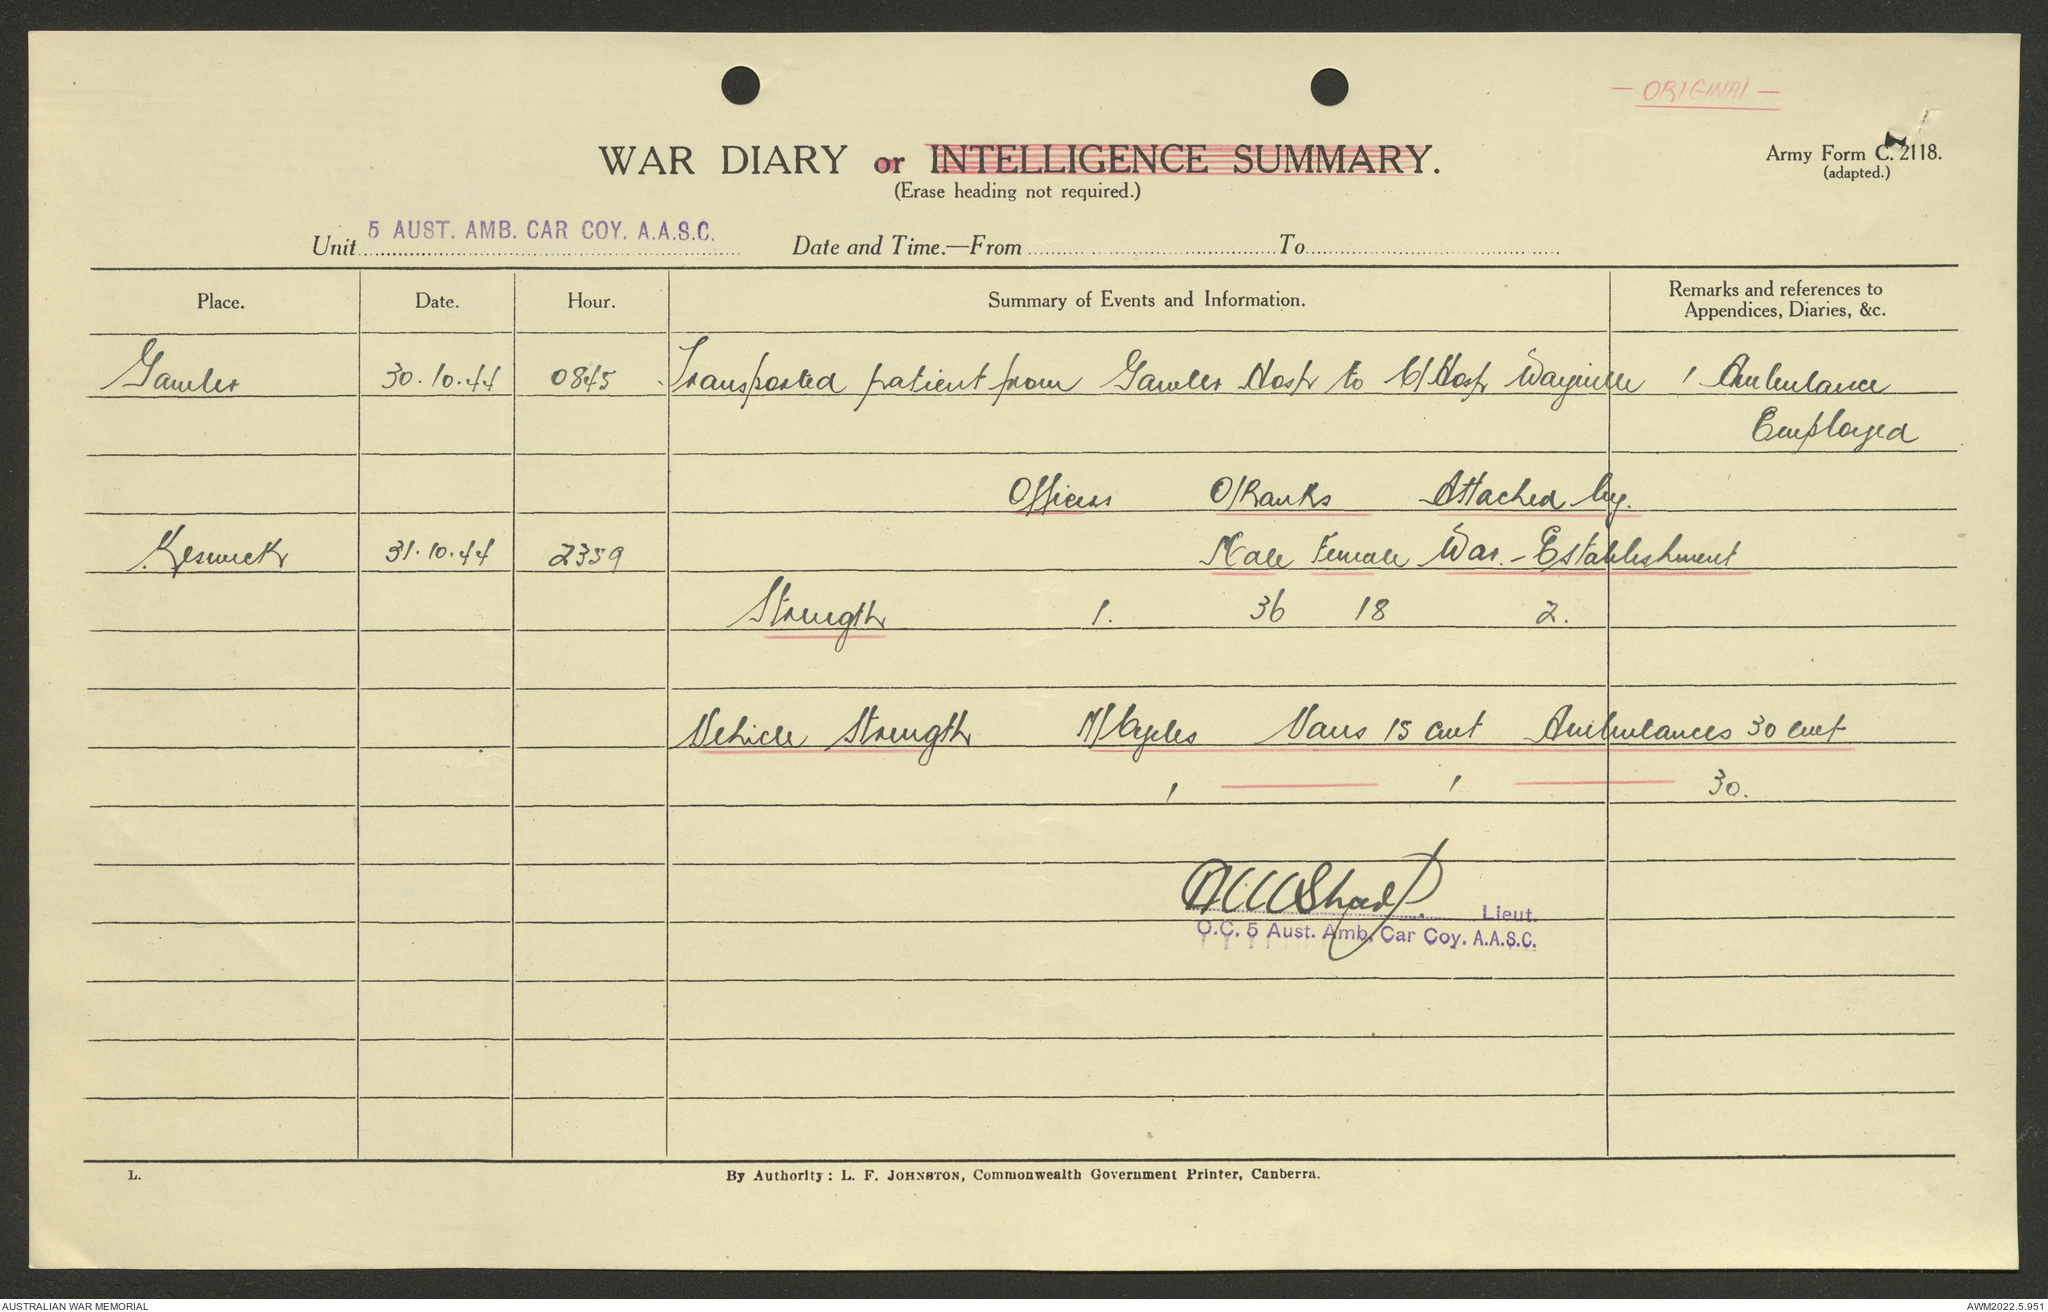 — ORIGINAL —
WAR DIARY or INTELLIGENCE SUMMARY.
(Erase heading not required.)
Army Form C. 2118.
(adapted.)
Unit 5 AUST. AMB. CAR COY. A.A.S.C. Date and Time.—From To
Place. Date. Hour. Summary of Events and Information. Remarks and references to Appendices, Diaries, &c.
Gawler 30.10.44 0845 Transported patient from Gawler Hosp to C/Hosp Wayville 1 Ambulance
Employed
Officers O/Ranks Attached by.
Keswick 31.10.44 2359 Male Female War.-Establishment
Strength 1. 36 18 2.
Vehicle Strength M/Cycles Vans 15 cwt Ambulances 30 cwt
1 1 30.
Lieut.
O.C. 5 Aust. Amb. Car Coy. A.A.S.C.
L.
By Authority: L. F. JOHNSTON, Commonwealth Government Printer, Canberra.
AUSTRALIAN WAR MEMORIAL
AWM2022.5.951